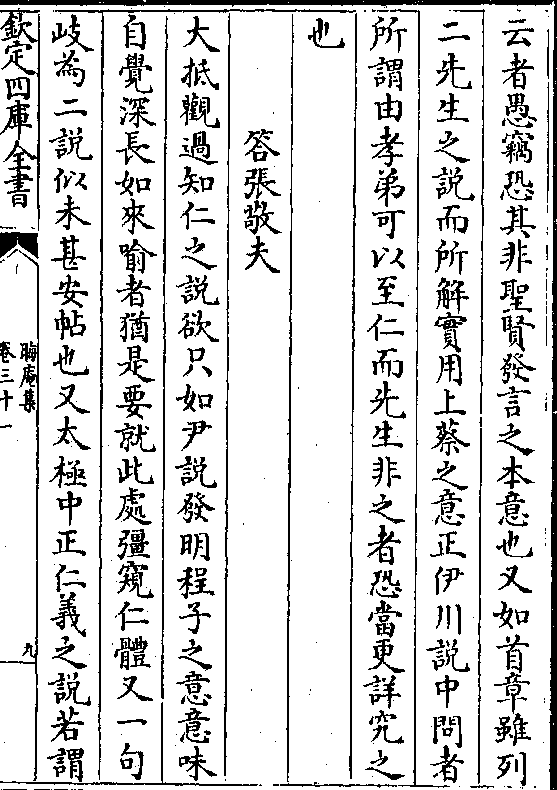 云者愚竊恐其非聖賢發言之本意也又如首章雖列
二先生之說而所解實用上蔡之意正伊川說中問者
所謂由孝弟可以至仁而先生非之者恐當更詳究之
也
答張敬夫
大抵觀過知仁之說欲只如尹說發明程子之意意味
自覺深長如來喻者猶是要就此處彊窺仁體又一句
岐為二說似未甚安帖也又太極中正仁義之說若謂
欽定四庫全書
晦庵集
卷三十一
九